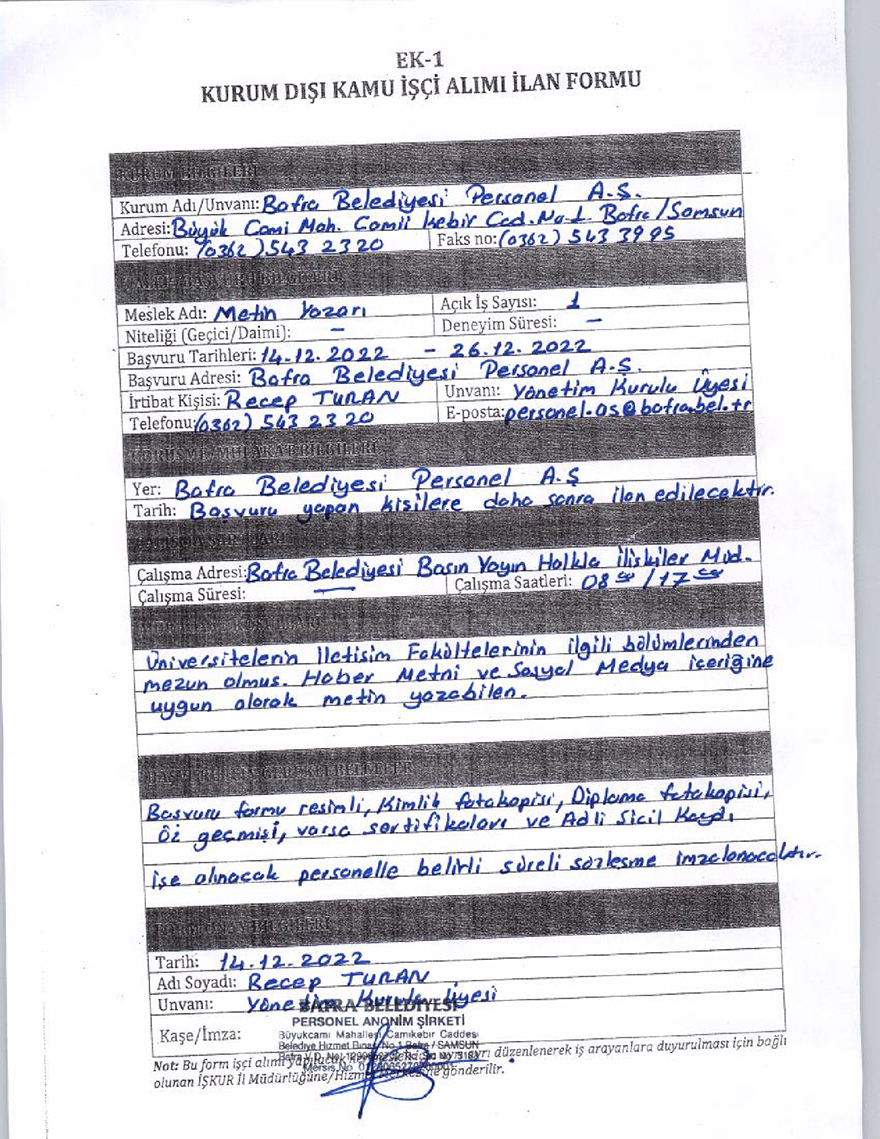 EK-1
KURUM DIŞI KAMU İŞÇİ ALIMI İLAN FORMU
KURUM BİLGİLERİ
Kurum Adı/Unvanı: Bafra Belediyesi Personel A.Ş.
Adresi: Büyük Cami Mah. Camii kebir Cad. No-1 Bafra/Samsun
Telefonu: (0362) 543 23 20 Faks no: (0362) 543 39 95
Meslek Adı: Metin Yazarı Açık İş Sayısı: 1
Niteliği (Geçici/Daimi): — Deneyim Süresi: —
Başvuru Tarihleri: 14.12.2022 - 26.12.2022
Başvuru Adresi: Bafra Belediyesi Personel A.Ş.
İrtibat Kişisi: Recep TURAN Unvanı: Yönetim Kurulu Üyesi
Telefonu: (0362) 543 23 20 E-posta: personel.as@bafra.bel.tr
GÖRÜŞME/MÜLAKAT BİLGİLERİ
Yer: Bafra Belediyesi Personel A.Ş
Tarih: Başvuru yapan kişilere daha sonra ilan edilecektir.
Çalışma Adresi: Bafra Belediyesi Basın Yayın Halkla İlişkiler Müd.
Çalışma Süresi: — Çalışma Saatleri: 08 00 / 17 00
Üniversitelerin İletişim Fakültelerinin ilgili bölümlerinden
mezun olmuş. Haber Metni ve Sosyal Medya içeriğine
uygun olarak metin yazabilen.
Başvuru formu resimli, Kimlik fotokopisi, Diploma fotokopisi,
Öz geçmişi, varsa sertifikaları ve Adli Sicil Kaydı
işe alınacak personelle belirli süreli sözleşme imzalanacaktır.
Tarih: 14.12.2022
Adı Soyadı: Recep TURAN
Unvanı: Yönetim Kurulu Üyesi
BAFRA BELEDİYESİ
PERSONEL ANONİM ŞİRKETİ
Kaşe/İmza:
Büyükcami Mahallesi Camikebir Caddesi
Belediye Hizmet Binası No:1 Bafra / SAMSUN
Not: Bu form işçi alımı yapılacak ayrı ayrı düzenlenerek iş arayanlara duyurulması için bağlı
olunan İŞKUR İl Müdürlüğüne/Hizmet Merkezine gönderilir.